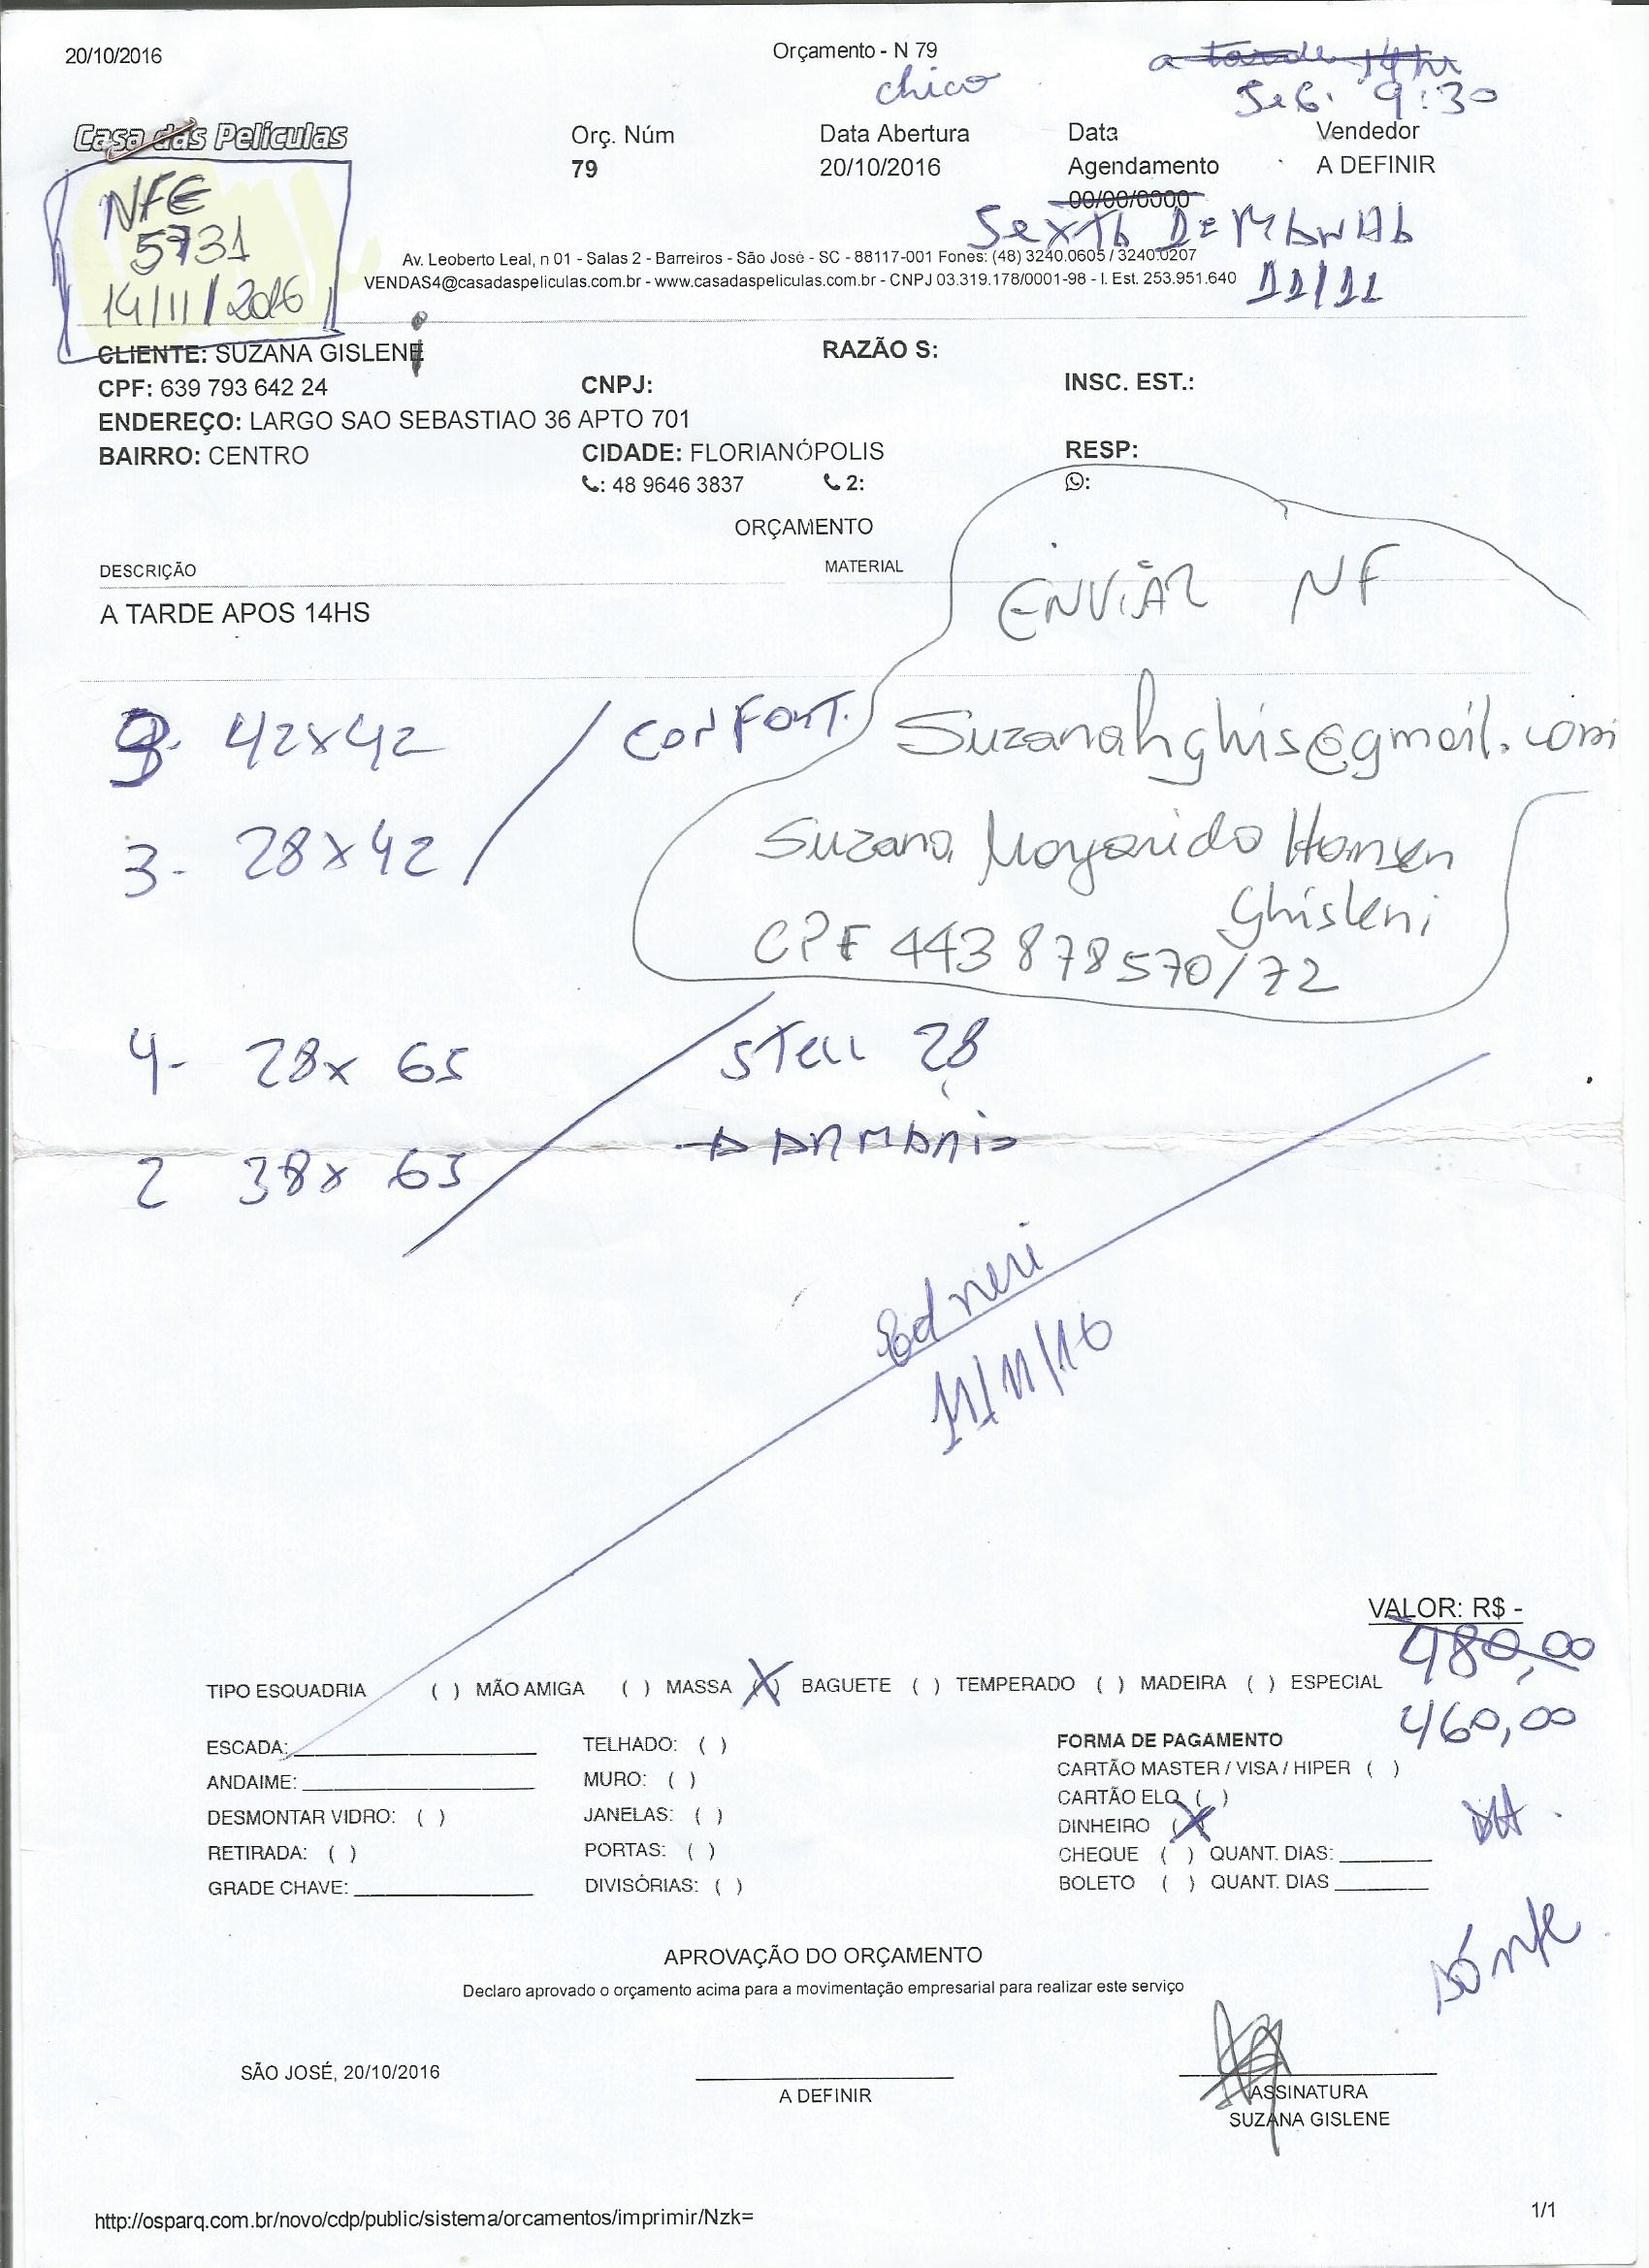 20/10/2016
Orçamento - N 79
a tarde 14 hr
chico
SEG. 9:30
Casa das Películas
Orç. Núm
79
Data Abertura
20/10/2016
Data
Agendamento
00/00/0000
Vendedor
A DEFINIR
NFE
5731
14/11/2016
SEXTA DE MANHÃ
11/11
Av. Leoberto Leal, n 01 - Salas 2 - Barreiros - São José - SC - 88117-001 Fones: (48) 3240.0605 / 3240.0207
VENDAS4@casadaspeliculas.com.br - www.casadaspeliculas.com.br - CNPJ 03.319.178/0001-98 - I. Est. 253.951.640
CLIENTE: SUZANA GISLENE
RAZÃO S:
CPF: 639 793 642 24
CNPJ:
INSC. EST.:
ENDEREÇO: LARGO SAO SEBASTIAO 36 APTO 701
BAIRRO: CENTRO
CIDADE: FLORIANÓPOLIS
RESP:
: 48 9646 3837
2:
:
ORÇAMENTO
DESCRIÇÃO
MATERIAL
A TARDE APOS 14HS
ENVIAR NF
42x42
CONFORT.
Suzanahghis@gmail.com
3- 28x42
Suzana Hansen
Ghisleni
CPF 443 878 570/72
4- 28x 65
STELL 28
2 38x 65
ARMÁRIO
Edineri
11/11/16
VALOR: R$ -
480,00
TIPO ESQUADRIA ( ) MÃO AMIGA ( ) MASSA (X) BAGUETE ( ) TEMPERADO ( ) MADEIRA ( ) ESPECIAL
460,00
ESCADA:
TELHADO: ( )
FORMA DE PAGAMENTO
ANDAIME:
MURO: ( )
CARTÃO MASTER / VISA / HIPER ( )
DESMONTAR VIDRO: ( )
JANELAS: ( )
CARTÃO ELO ( )
DINHEIRO (X)
RETIRADA: ( )
PORTAS: ( )
CHEQUE ( ) QUANT. DIAS:
GRADE CHAVE:
DIVISÓRIAS: ( )
BOLETO ( ) QUANT. DIAS
só nfe
APROVAÇÃO DO ORÇAMENTO
Declaro aprovado o orçamento acima para a movimentação empresarial para realizar este serviço
SÃO JOSÉ, 20/10/2016
A DEFINIR
ASSINATURA
SUZANA GISLENE
http://osparq.com.br/novo/cdp/public/sistema/orcamentos/imprimir/Nzk=
1/1